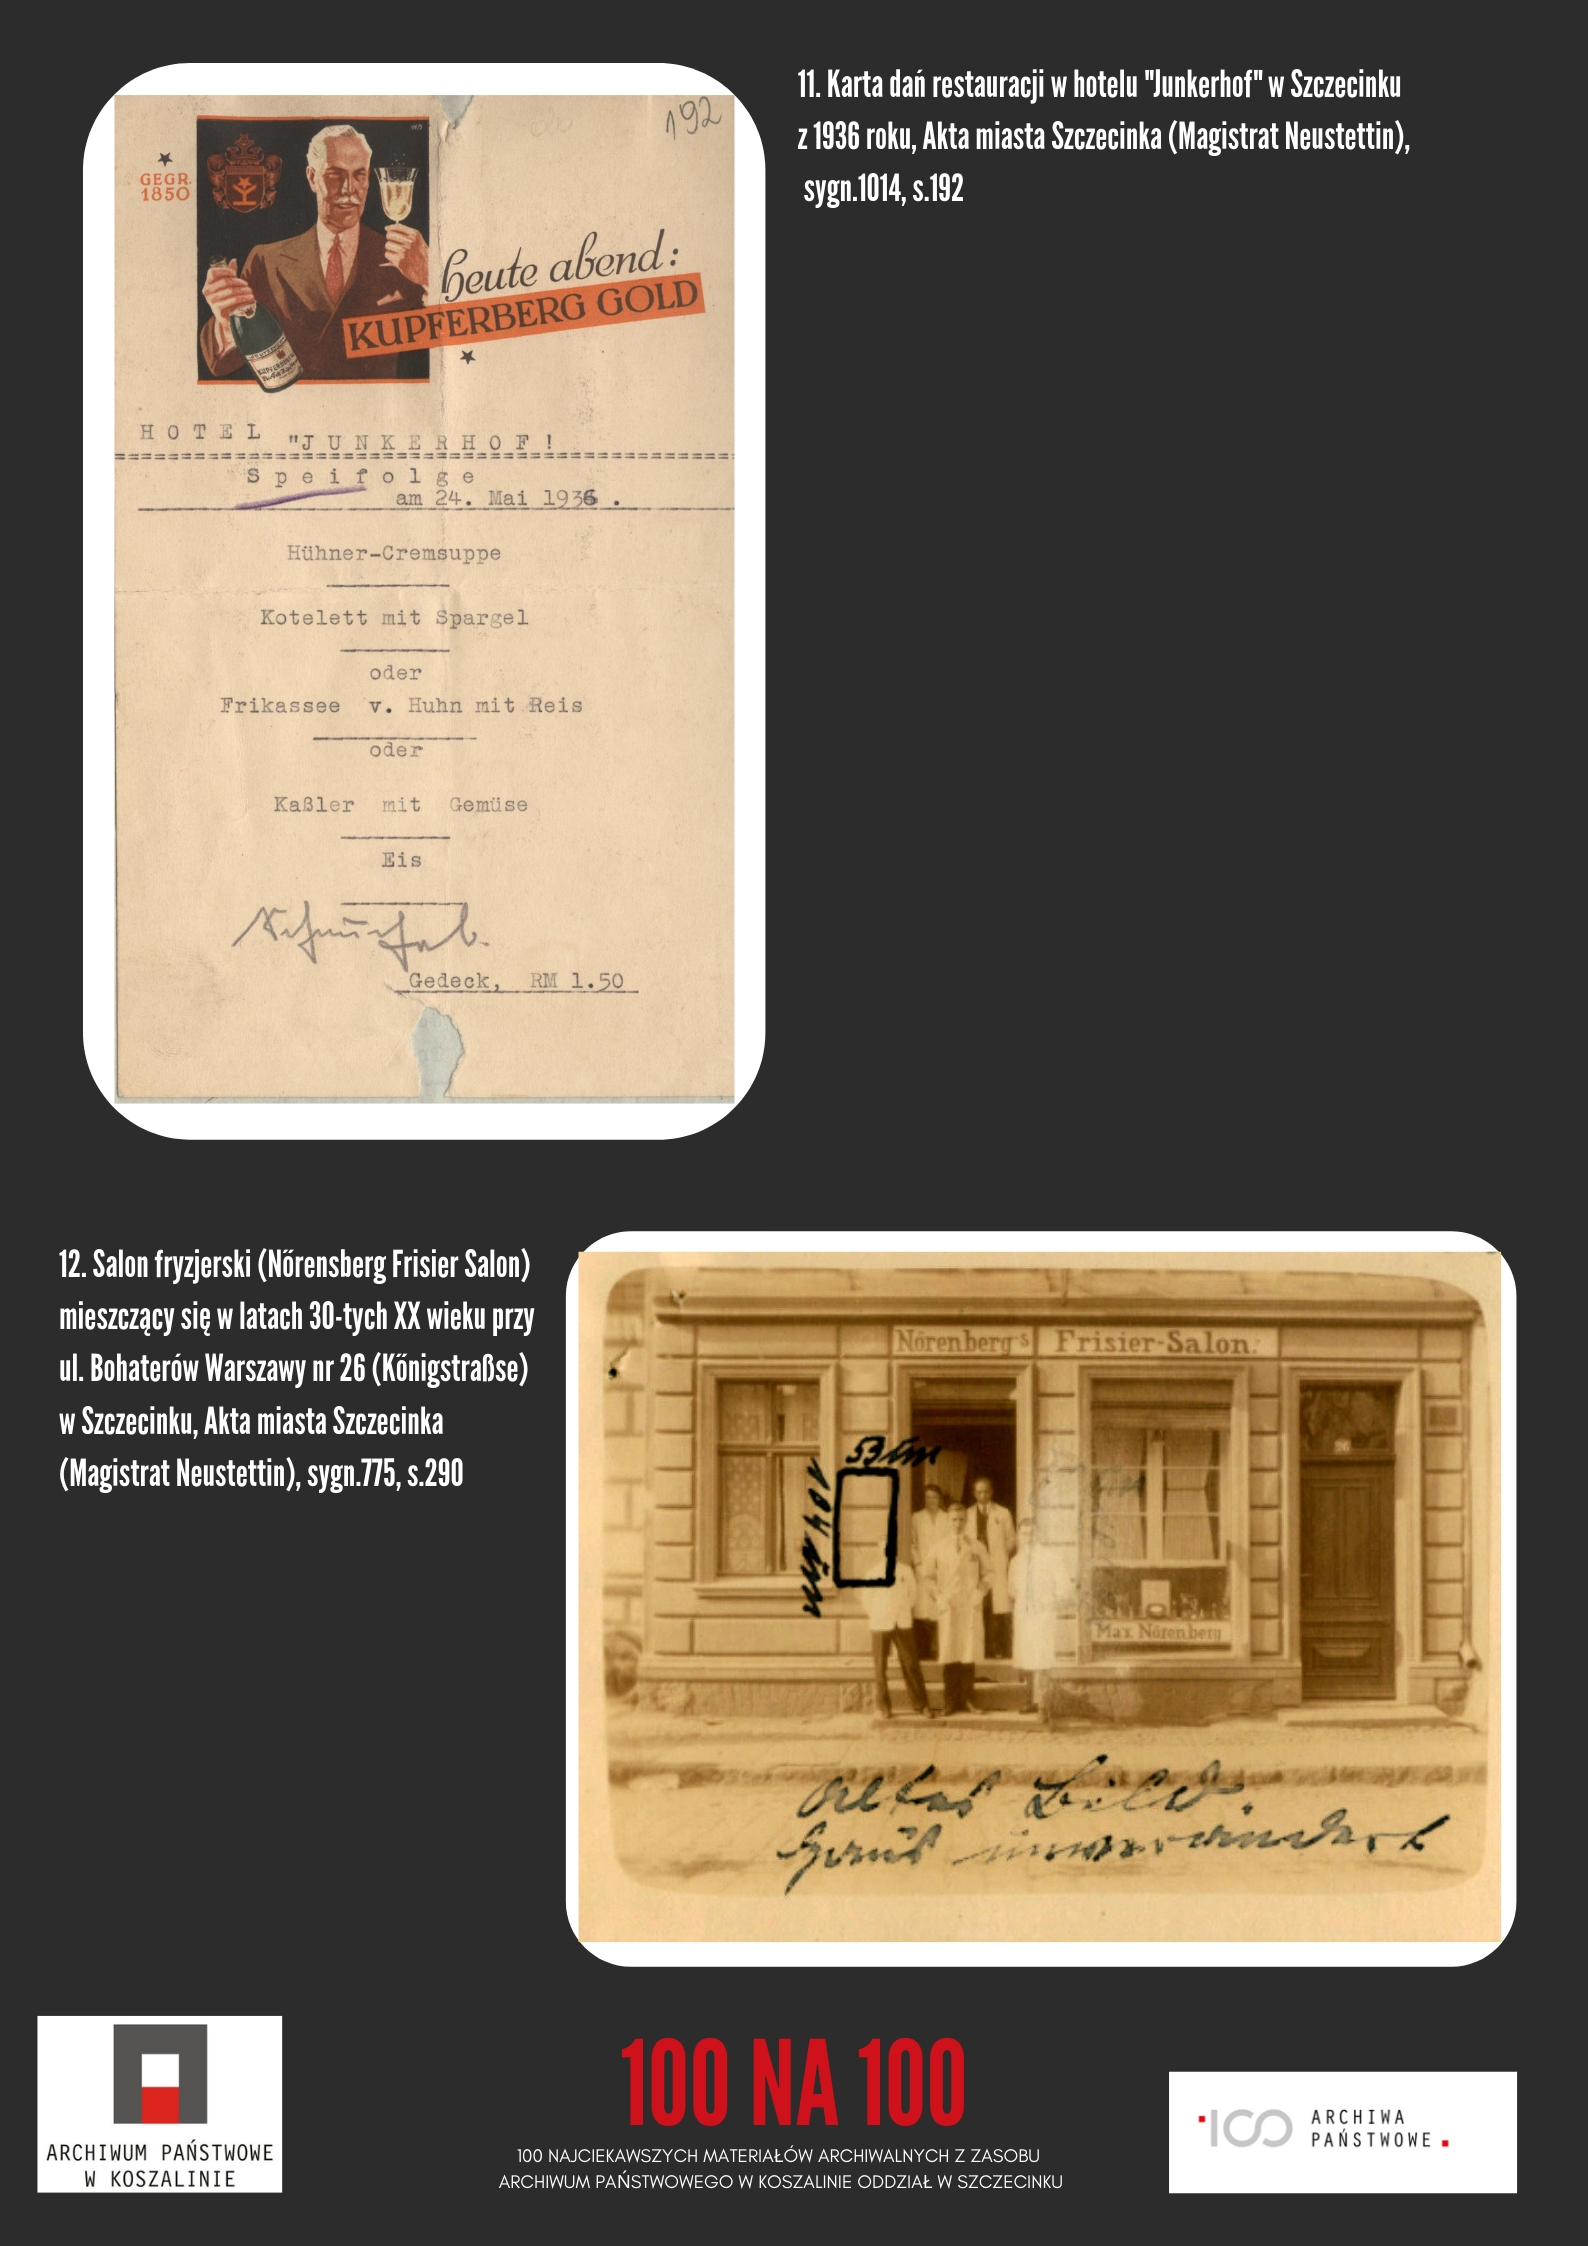 11. Karta dań restauracji w hotelu "Junkerhof" w Szczecinku
z 1936 roku, Akta miasta Szczecinka (Magistrat Neustettin),
sygn.1014, s.192
192
GEGR.
1850
heute abend:
KUPFERBERG GOLD
HOTEL "JUNKERHOF!
Speifolge
am 24. Mai 1936 .
Hühner-Cremsuppe
Kotelett mit Spargel
oder
Frikassee v. Huhn mit Reis
oder
Kaßler mit Gemüse
Eis
Gedeck, RM 1.50
12. Salon fryzjerski (Nőrensberg Frisier Salon)
mieszczący się w latach 30-tych XX wieku przy
ul. Bohaterów Warszawy nr 26 (Kőnigstraßse)
w Szczecinku, Akta miasta Szczecinka
(Magistrat Neustettin), sygn.775, s.290
Nörenberg's Frisier-Salon.
26
Max Nörenberg
Altes Bild.
Haus unverändert
ARCHIWUM PAŃSTWOWE
W KOSZALINIE
100 NA 100
100 NAJCIEKAWSZYCH MATERIAŁÓW ARCHIWALNYCH Z ZASOBU
ARCHIWUM PAŃSTWOWEGO W KOSZALINIE ODDZIAŁ W SZCZECINKU
100 ARCHIWA
PAŃSTWOWE